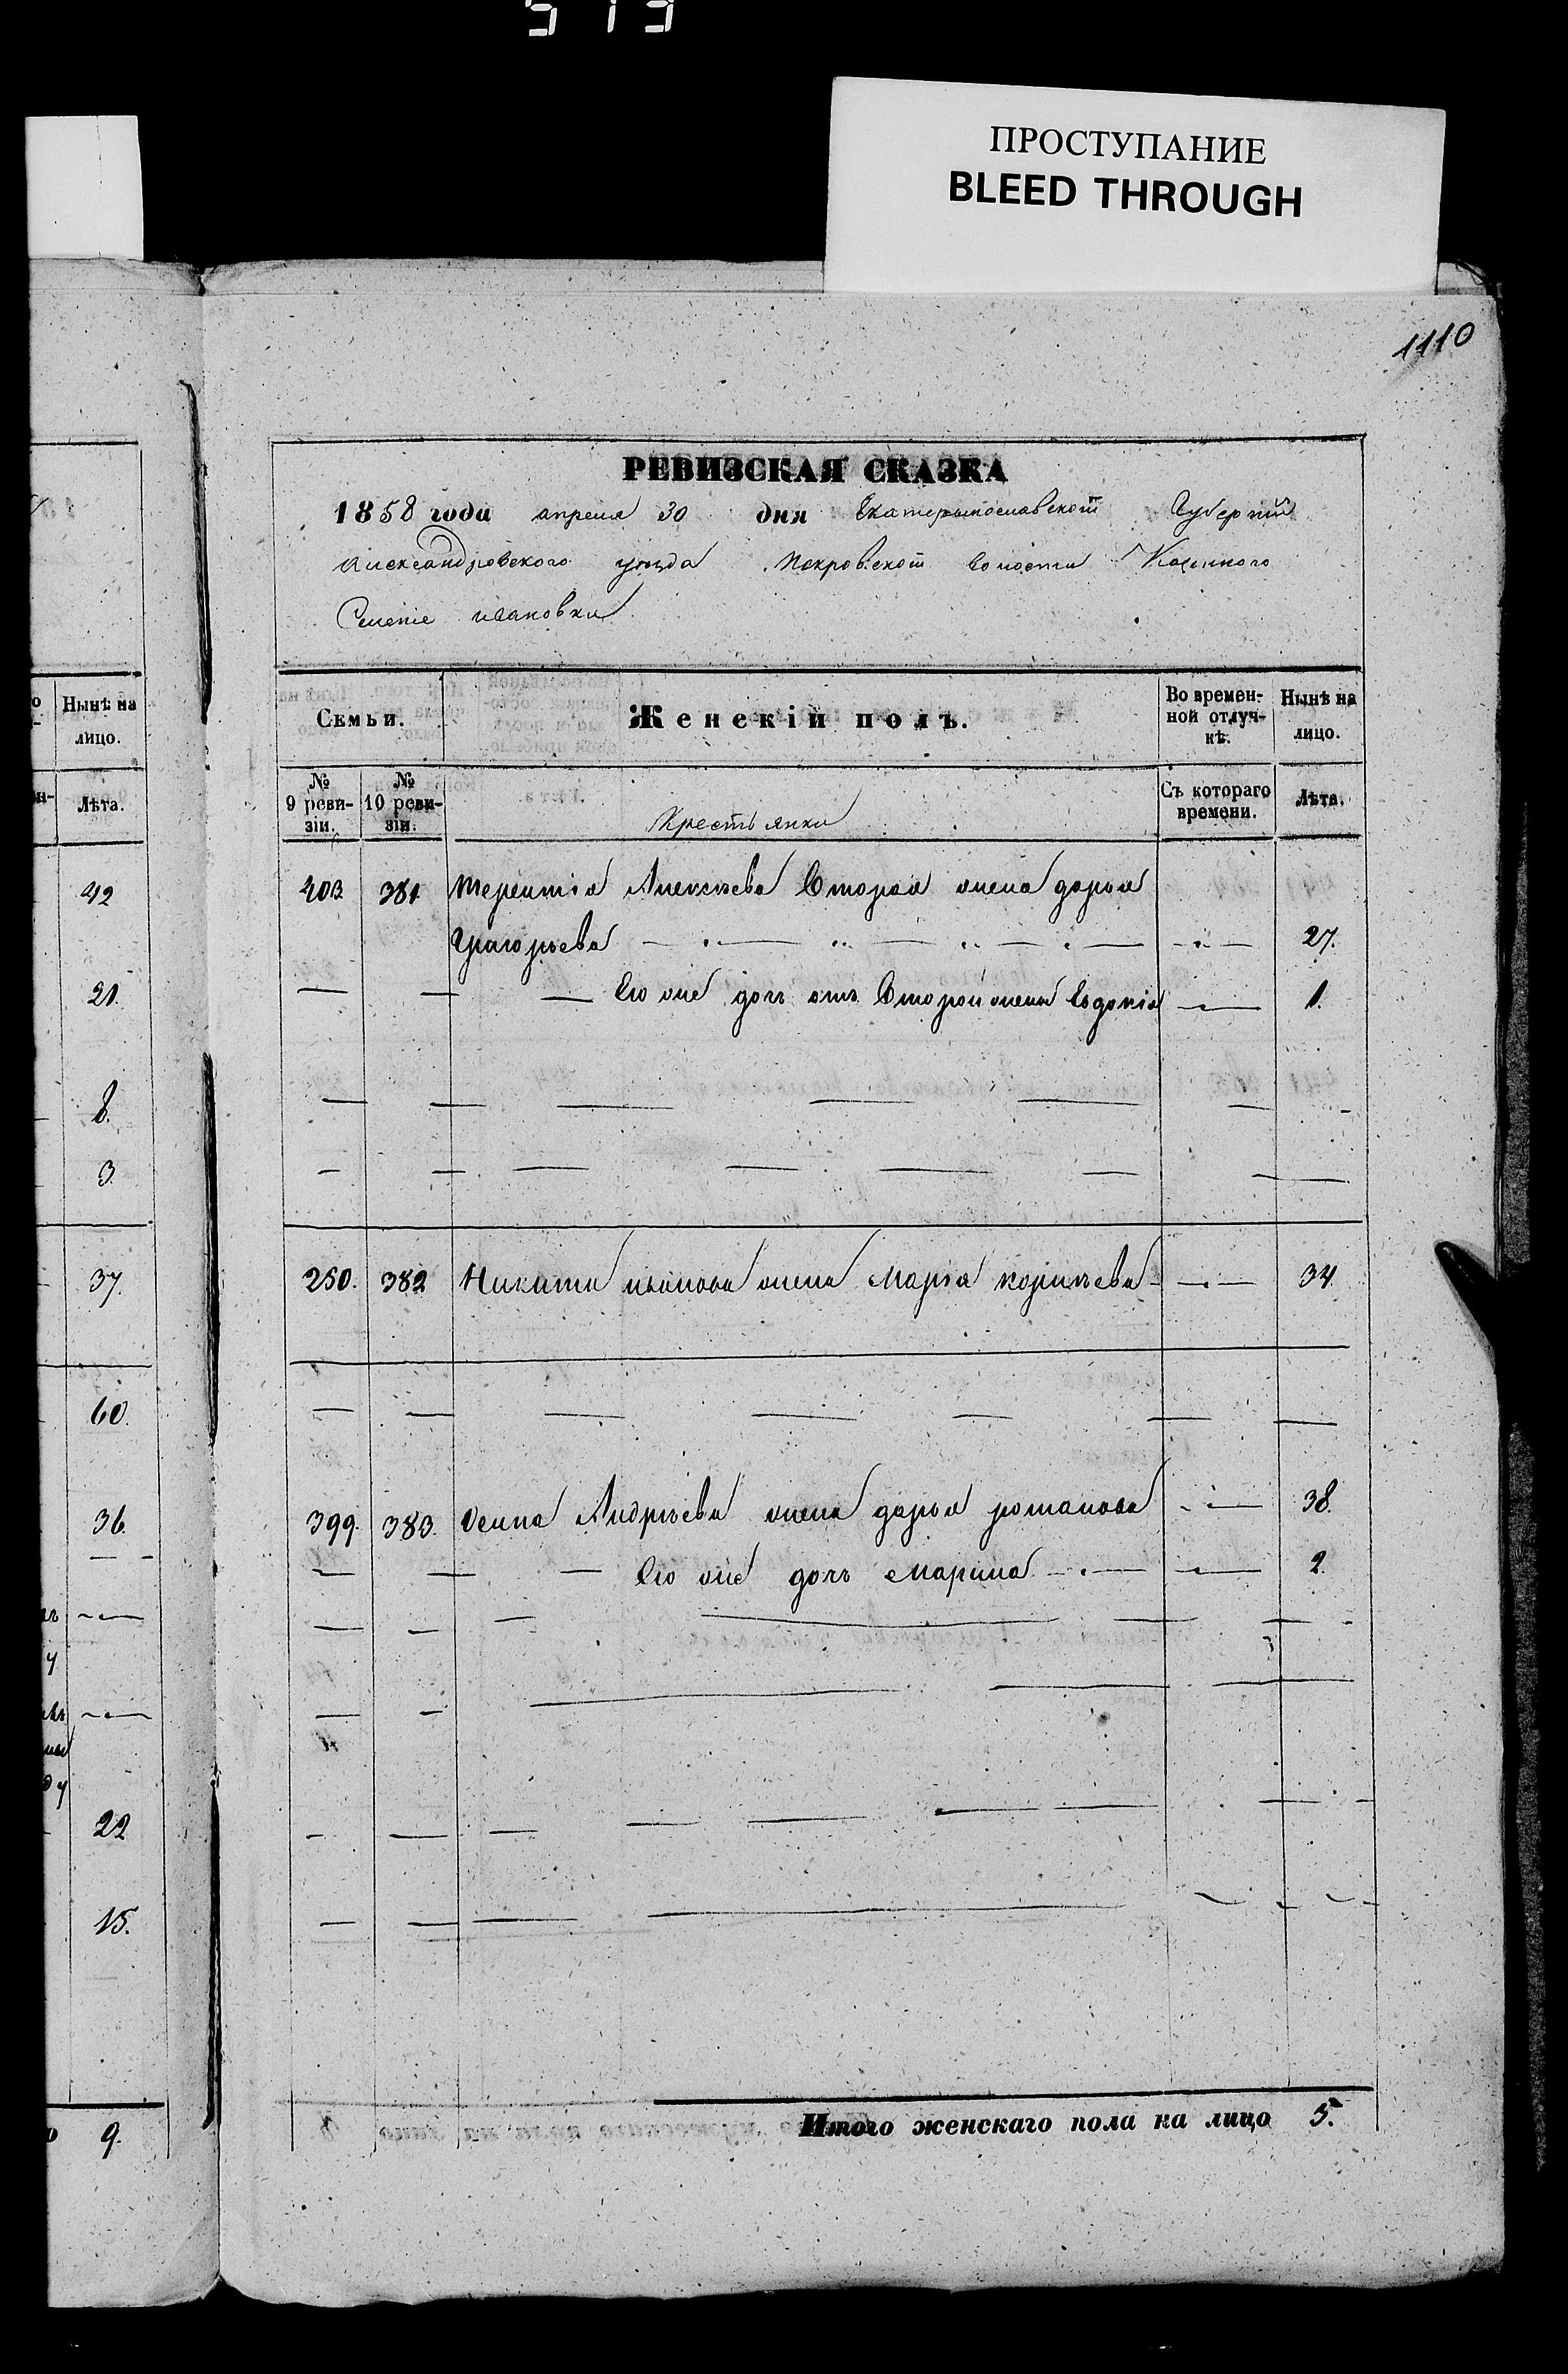 513
ПРОСТУПАНИЕ
BLEED THROUGH
1110
РЕВИЗСКАЯ СКАЗКА
1858 года апреля 30 дня Екатериносла́вской Губерніи
Александровского уѣзда Покровской волости Казенного
Селеніе ивановки
Семьи. Женскій полъ. Во временной отлучкѣ. Нынѣ на лицо.
№ 9 ревизіи. № 10 ревизіи. Крестьянки Съ котораго времени. Лѣта.
203 381 Терентія Алексѣева Вторая жена дарья
Григорьева 27.
Его же дочь отъ Второй жены Евдокія 1.
250. 382 Никиты иванова жена Марія корнѣева 34.
399. 383. Осипа Андрѣева жена дарья романова 38.
Его же дочь Марина 2.
Итого женскаго пола на лицо 5.
Нынѣ на
лицо.
Лѣта.
42
21.
8.
3.
37.
60.
36.
22
15.
9.